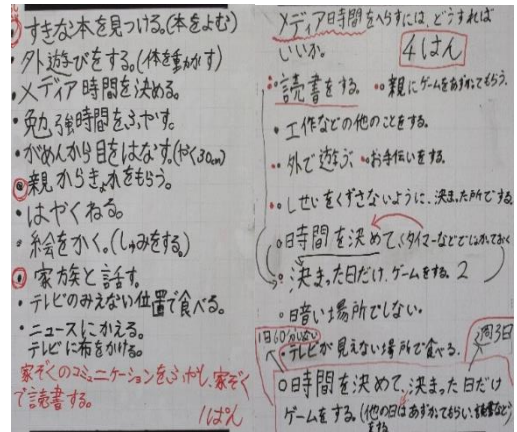 ・すきな本を見つける。(本をよむ)
・外遊びをする。(体を動かす)
・メディア時間を決める。
・勉強時間をふやす。
・がめんから目をはなす。(やく30cm)
・親からきょかをもらう。
・はやくねる。
・絵をかく。(しゅみをする)
・家族と話す。
・テレビのみえない位置で食べる。
・ニュースにかえる。
テレビに布をかける。
家ぞくのコミュニケーションをふやし、家ぞく
で読書する。
1ぱん
メディア時間をへらすには、どうすれば
いいか。
4はん
・読書をする。
・親にゲームをあずかってもらう。
・工作などの他のことをする。
・外で遊ぶ
・お手伝いをする。
・しせいをくずさないように、決まった所でする。
○時間を決めて、(タイマーなどで
・決まった日だけ、ゲームをする 2
○暗い場所でしない。
1日60分
・テレビが見えない場所で食べる。
週3日
○時間を決めて、決まった日だけ
ゲームをする(他の日はあずかってもらい、読書など)
をする